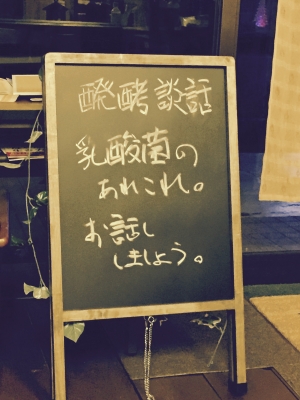 醗酵談話
乳酸菌の
あれこれ。
お話し
しましょう。